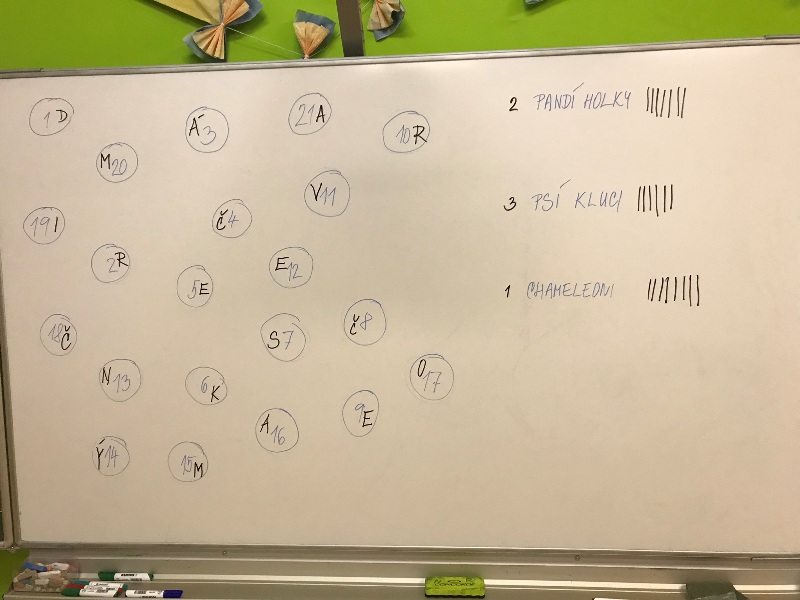 1 D
Á 3
21 A
10 R
M 20
V 11
19 I
Č 4
2 R
5 E
E 12
18 Č
S 7
Č 8
N 13
6 K
O 17
A 16
9 E
Ý 14
15 M
2 PANDÍ HOLKY
3 PSÍ KLUCI
1 CHAMELEONI